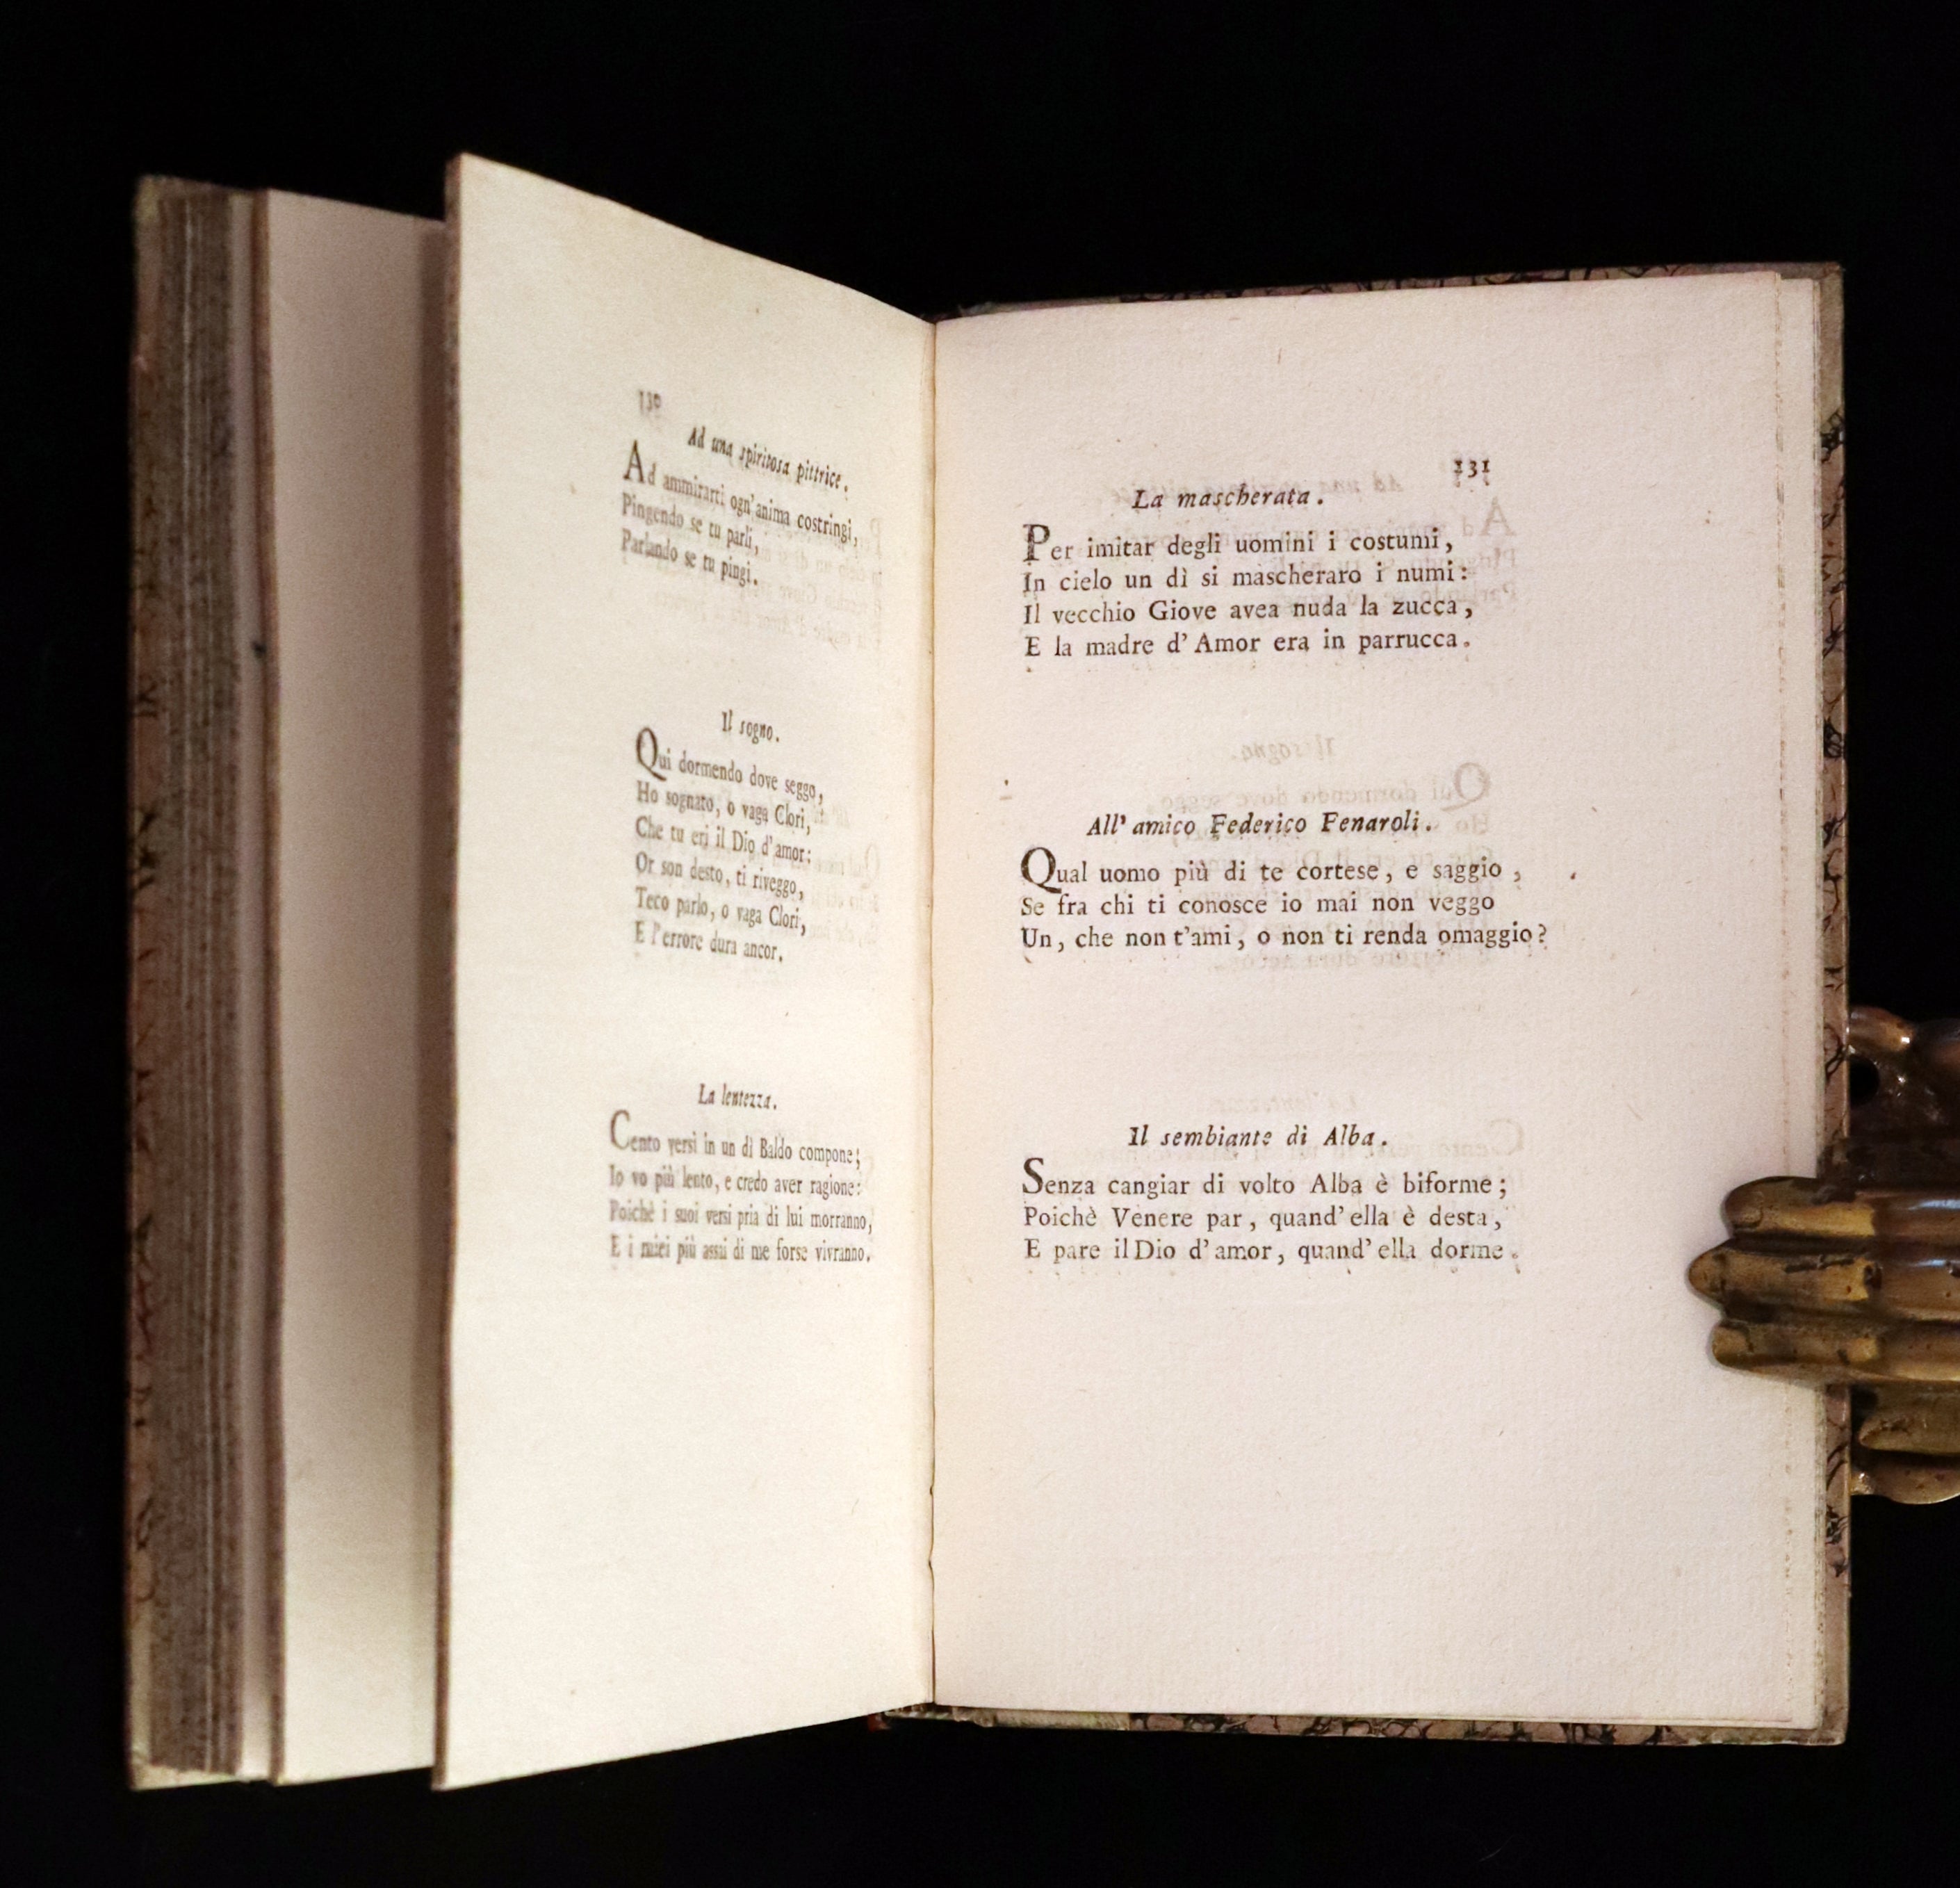 130
Ad una spiritosa pittrice.
Ad ammirarti ogn'anima costringi,
Pingendo se tu parli,
Parlando se tu pingi.
Il sogno.
Qui dormendo dove seggo,
Ho sognato, o vaga Clori,
Che tu eri il Dio d'amor:
Or son desto, ti riveggo,
Teco parlo, o vaga Clori,
E l'errore dura ancor.
La lentezza.
Cento versi in un dì Baldo compone;
Io vo più lento, e credo aver ragione:
Poichè i suoi versi pria di lui morranno,
E i miei più assai di me forse vivranno.
131
La mascherata.
Per imitar degli uomini i costumi,
In cielo un dì si mascheraro i numi:
Il vecchio Giove avea nuda la zucca,
E la madre d'Amor era in parrucca.
All' amico Federico Fenaroli.
Qual uomo più di te cortese, e saggio,
Se fra chi ti conosce io mai non veggo
Un, che non t'ami, o non ti renda omaggio?
Il sembiante di Alba.
Senza cangiar di volto Alba è biforme;
Poichè Venere par, quand'ella è desta,
E pare il Dio d'amor, quand'ella dorme.